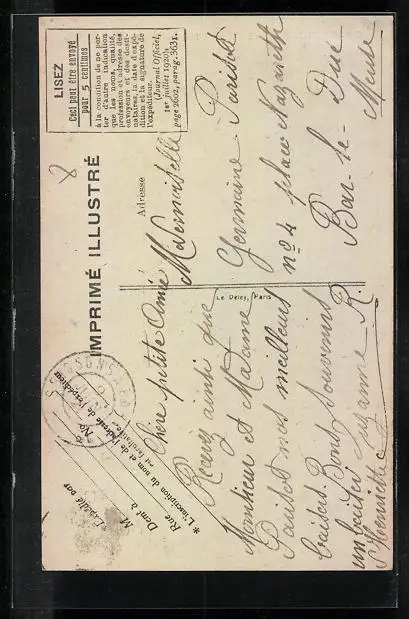 LISEZ
Ceci peut être envoyé
pour 5 centimes
à la condition de ne porter
d'autre indication
que les noms, qualité,
profession et adresse des
envoyeurs et des destinataires,
la date d'expédition
et la signature de
l'expéditeur.
(Journal Officiel,
1er juillet 1920),
page 2602, parag. 3631.
8
IMPRIMÉ ILLUSTRÉ
Adresse
Mademoiselle
Germaine Parisot
no 4 place Nazareth
Bar-le-Duc
Meuse
Le Deley, Paris
Expédié par
M
Demt à
Rue
No
* L'inscription du nom et de l'adresse de l'expéditeur
est facultative.
Chère petite amie
Recevez ainsi que
Monsieur et Madame
Parisot nos meilleurs
baisers. Bons souvenirs
un baiser Suzanne R.
Henriette